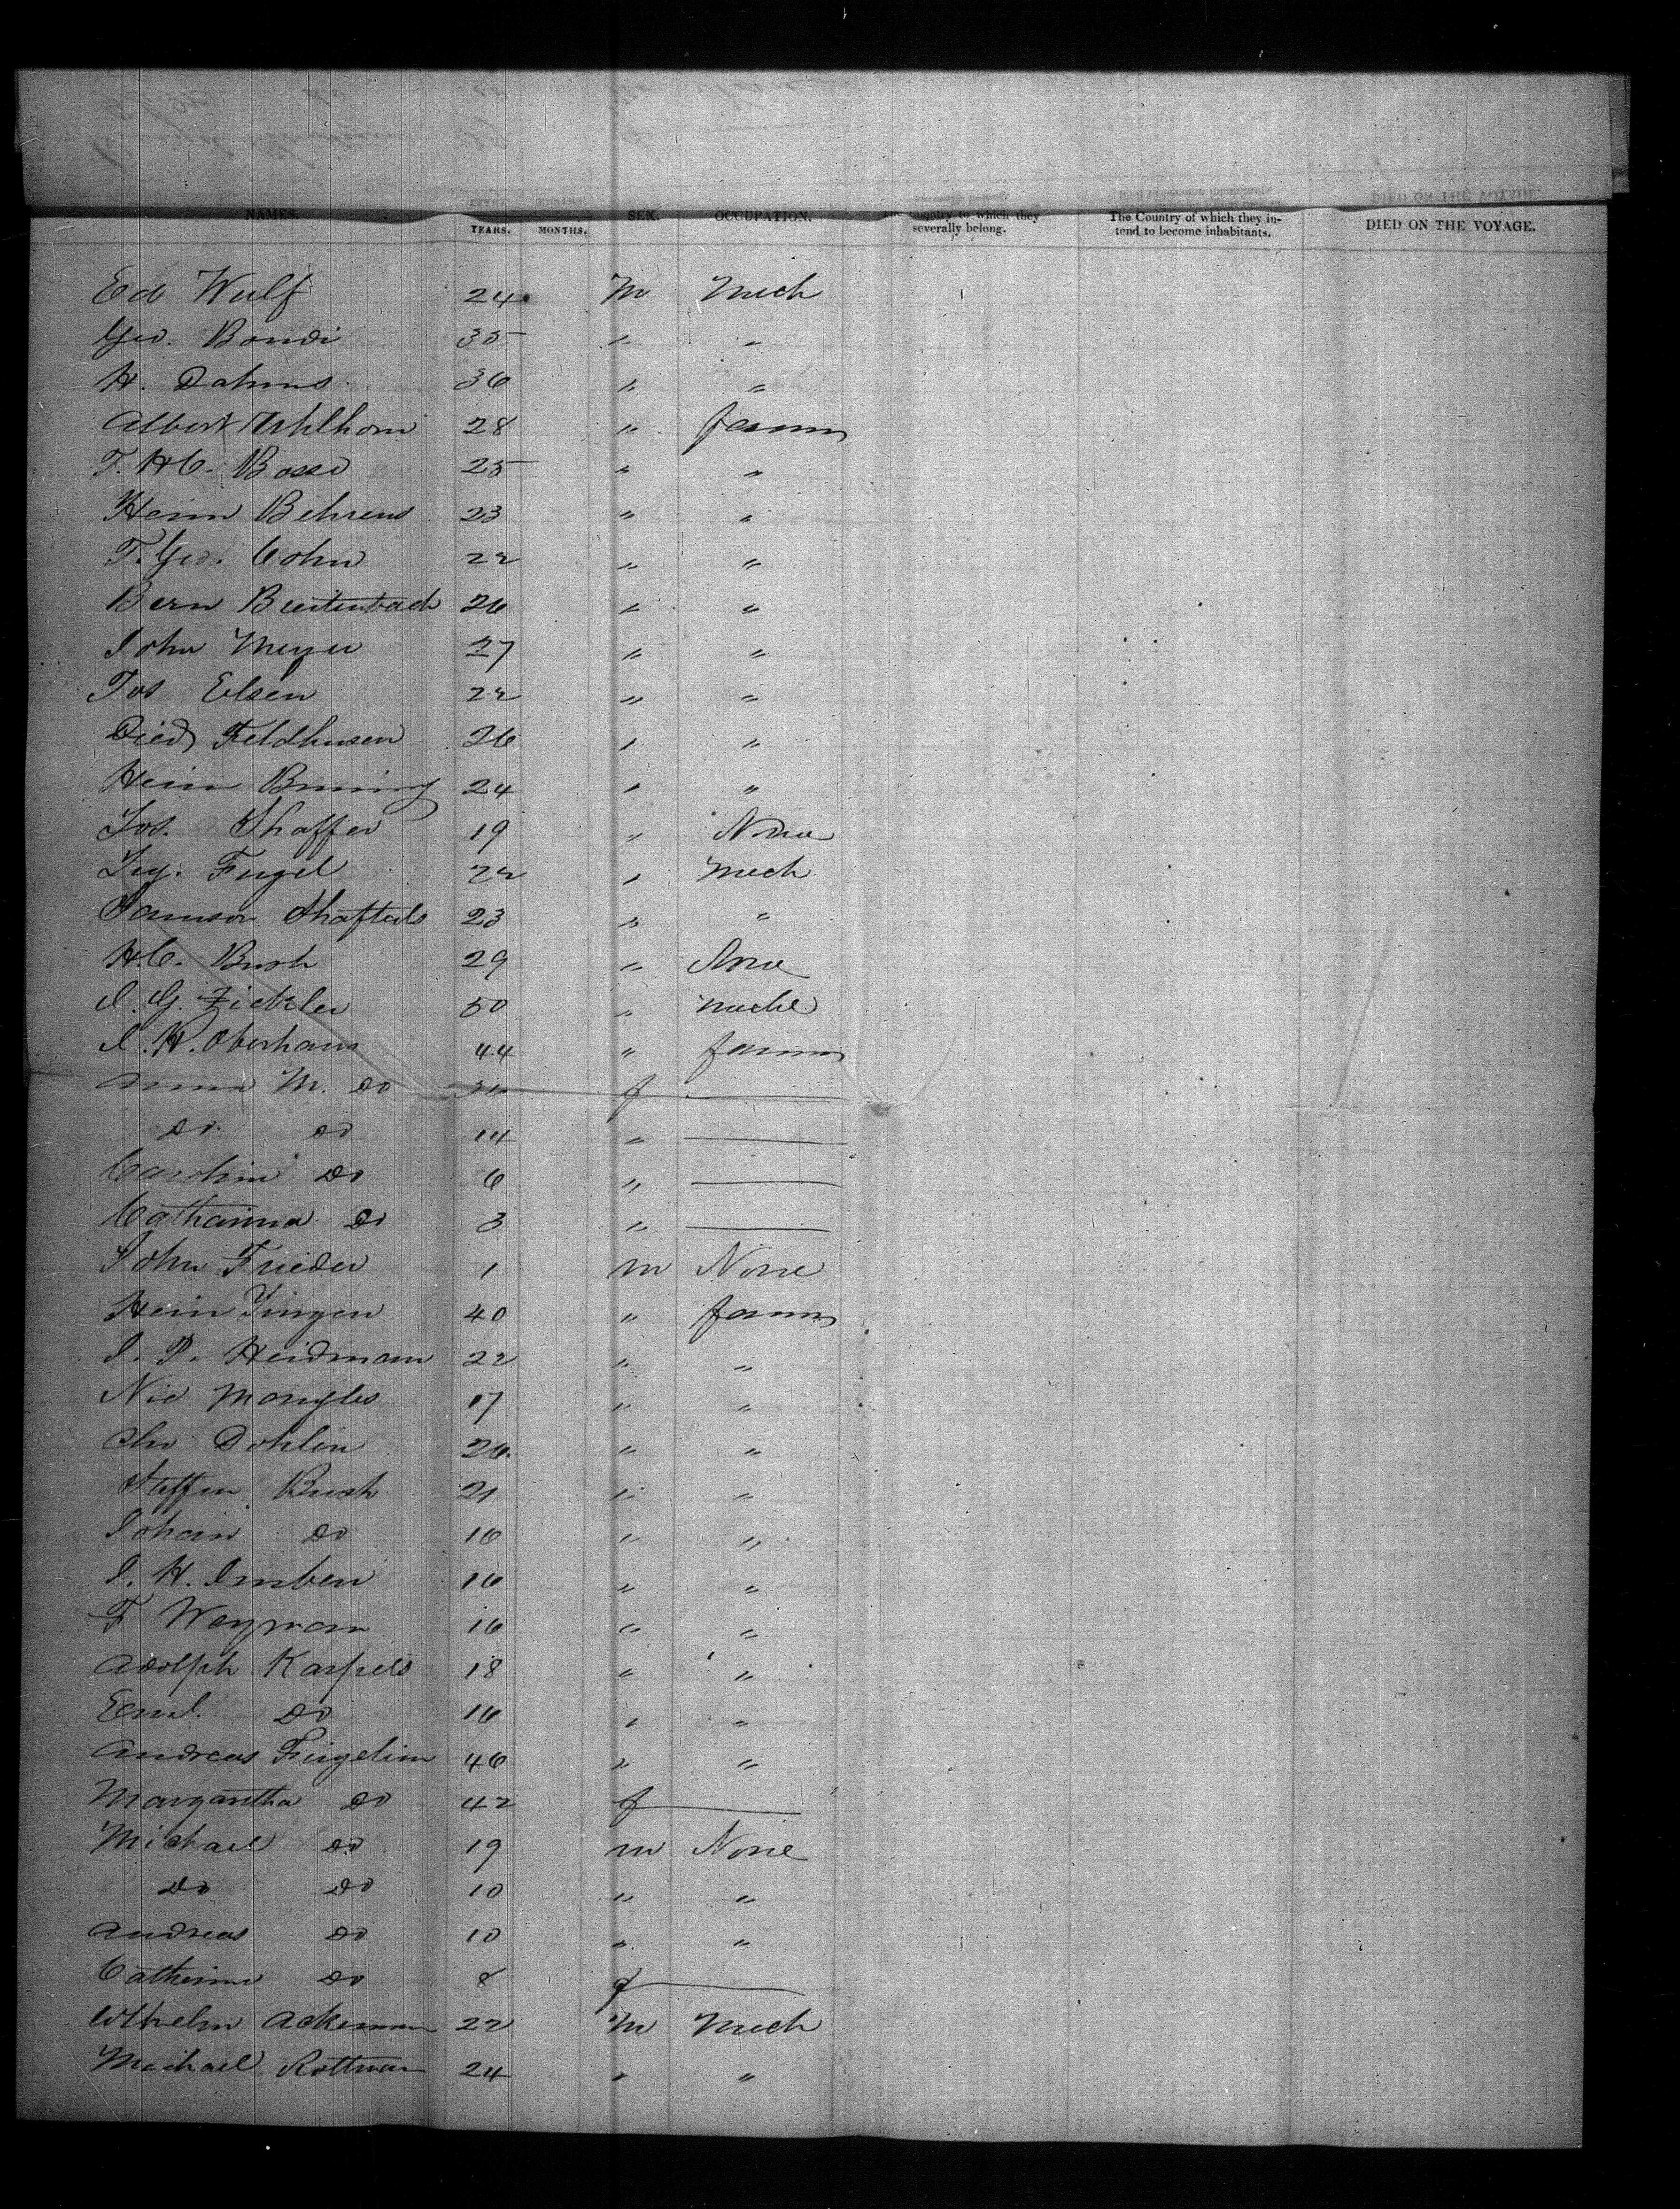 NAMES. YEARS. MONTHS. SEX. OCCUPATION. The Country to which they severally belong. The Country of which they intend to become inhabitants. DIED ON THE VOYAGE.
Ed Wulf 24 M Mech
Geo. Bondi 35 " "
H. Dahms 36 " "
Albert Uhlhorn 28 " farmer
F. H C. Bosse 25 " "
Heinn Behrens 23 " "
F. Geo. Cohn 22 " "
Bern Breitenbach 26 " "
John Meyer 27 " "
Jos Elsen 22 " "
Died Feldhusen 26 " "
Hein Bruning 24 " "
Jos. Shaffer 19 " None
Fugel 22 " Mech
Samson 23 " "
H. C. Bush 29 " None
J. G. Zickler 50 " Meche
J. H. Oberhaus 44 " farmer
Anna M. Do 36 f
Do Do 14 "
Carolin Do 6 "
Catharina Do 3 "
John Frieder 1 m None
Hein 40 " farmer
J. P. Heidmann 22 " "
Nic Mangles 17 " "
Chr Dohlin 26 " "
Steffen Bush 21 " "
Johan Do 16 " "
J. H. 16 " "
F Weyman 16 " "
Adolph Karpels 18 " "
Emil Do 16 " "
Andreas 46 " "
Margaretha Do 42 f
Michael Do 19 m None
Do Do 10 " "
Andreas Do 10 " "
Catherine Do 8 f
Wilhelm Ackerman 22 M Mech
Michael Rottman 24 " "